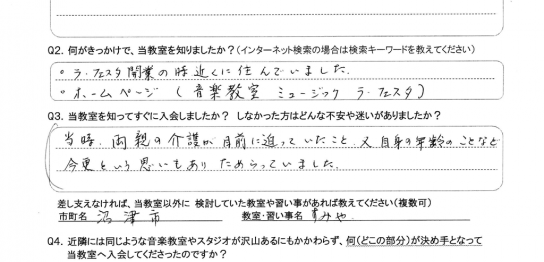 Q2. 何がきっかけで、当教室を知りましたか？(インターネット検索の場合は検索キーワードを教えてください)
○ ラ・フェスタ開業の時近くに住んでいました.
○ ホームページ (音楽教室 ミュージック ラ・フェスタ)
Q3. 当教室を知ってすぐに入会しましたか？ しなかった方はどんな不安や迷いがありましたか？
当時、両親の介護が目前に迫っていたこと 又 自身の年齢のことなど
今更という思いもあり ためらっていました.
差し支えなければ、当教室以外に 検討していた教室や習い事があれば教えてください（複数可）
市町名 沼津市 教室・習い事名 すみや.
Q4. 近隣には同じような音楽教室やスタジオが沢山あるにもかかわらず、何(どこの部分)が決め手となって
当教室へ入会してくださったのですか？